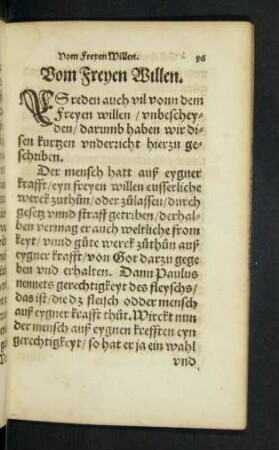 Vom Freyen Willen. 96
Vom Freyen Willen.
ES reden auch vil vonn dem
Freyen willen / vnbeschey-
den / darumb haben wir di-
sen kurtzen vnderricht hierzu ge-
schriben.
Der mensch hatt auß eygner
krafft / eyn freyen willen eusserliche
werck zuthůn / oder zůlassen / durch
gesetz vnnd straff getriben / derhal-
ben vermag er auch weltliche from
keyt / vnnd gůte werck zůthůn auß
eygner krafft / von Got darzu gege
ben vnd erhalten. Dann Paulus
nennets gerechtigkeyt des fleyschs /
das ist / die dz fleisch odder mensch
auß eygner krafft thůt. Wirckt nun
der mensch auß eygnen krefften eyn
gerechtigkeyt / so hat er ja ein wahl
vnd